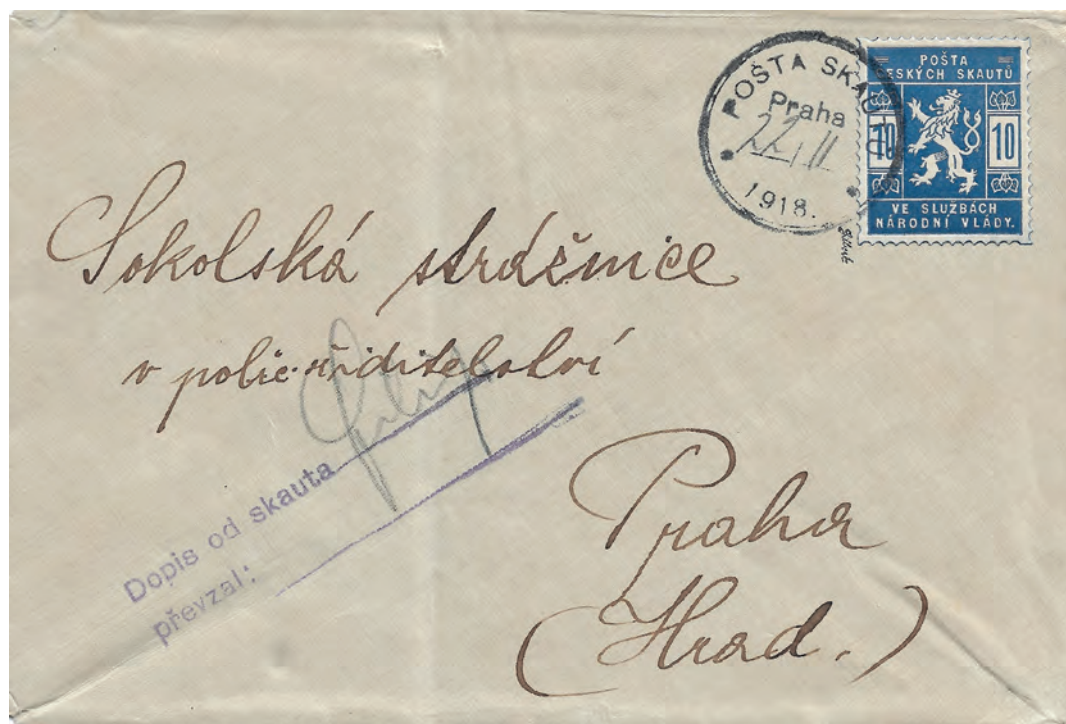 POŠTA SKAUTŮ
Praha
22/11
1918.
POŠTA
ČESKÝCH SKAUTŮ
10 10
VE SLUŽBÁCH
NÁRODNÍ VLÁDY.
Sokolská strážnice
v polic. ředitelství
Dopis od skauta
převzal:
Praha
(Hrad.)